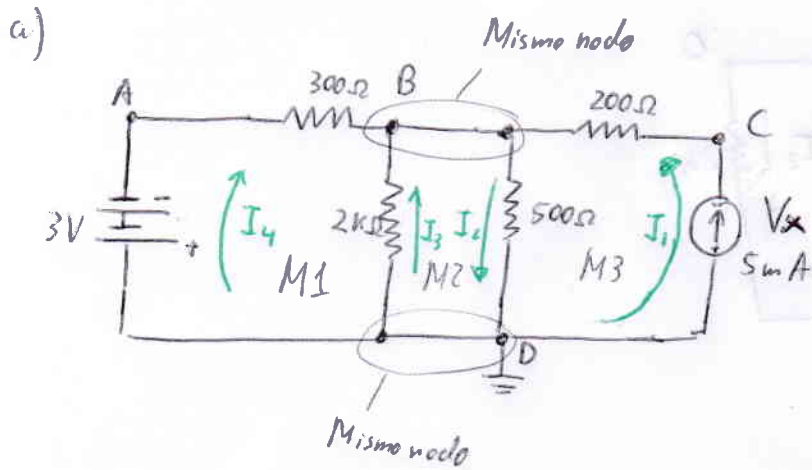 a)
Mismo nodo
A
300Ω
B
200Ω
C
3V
-
+
I4
M1
2KΩ
I3
M2
I2
500Ω
M3
I1
Vx
5mA
D
Mismo nodo